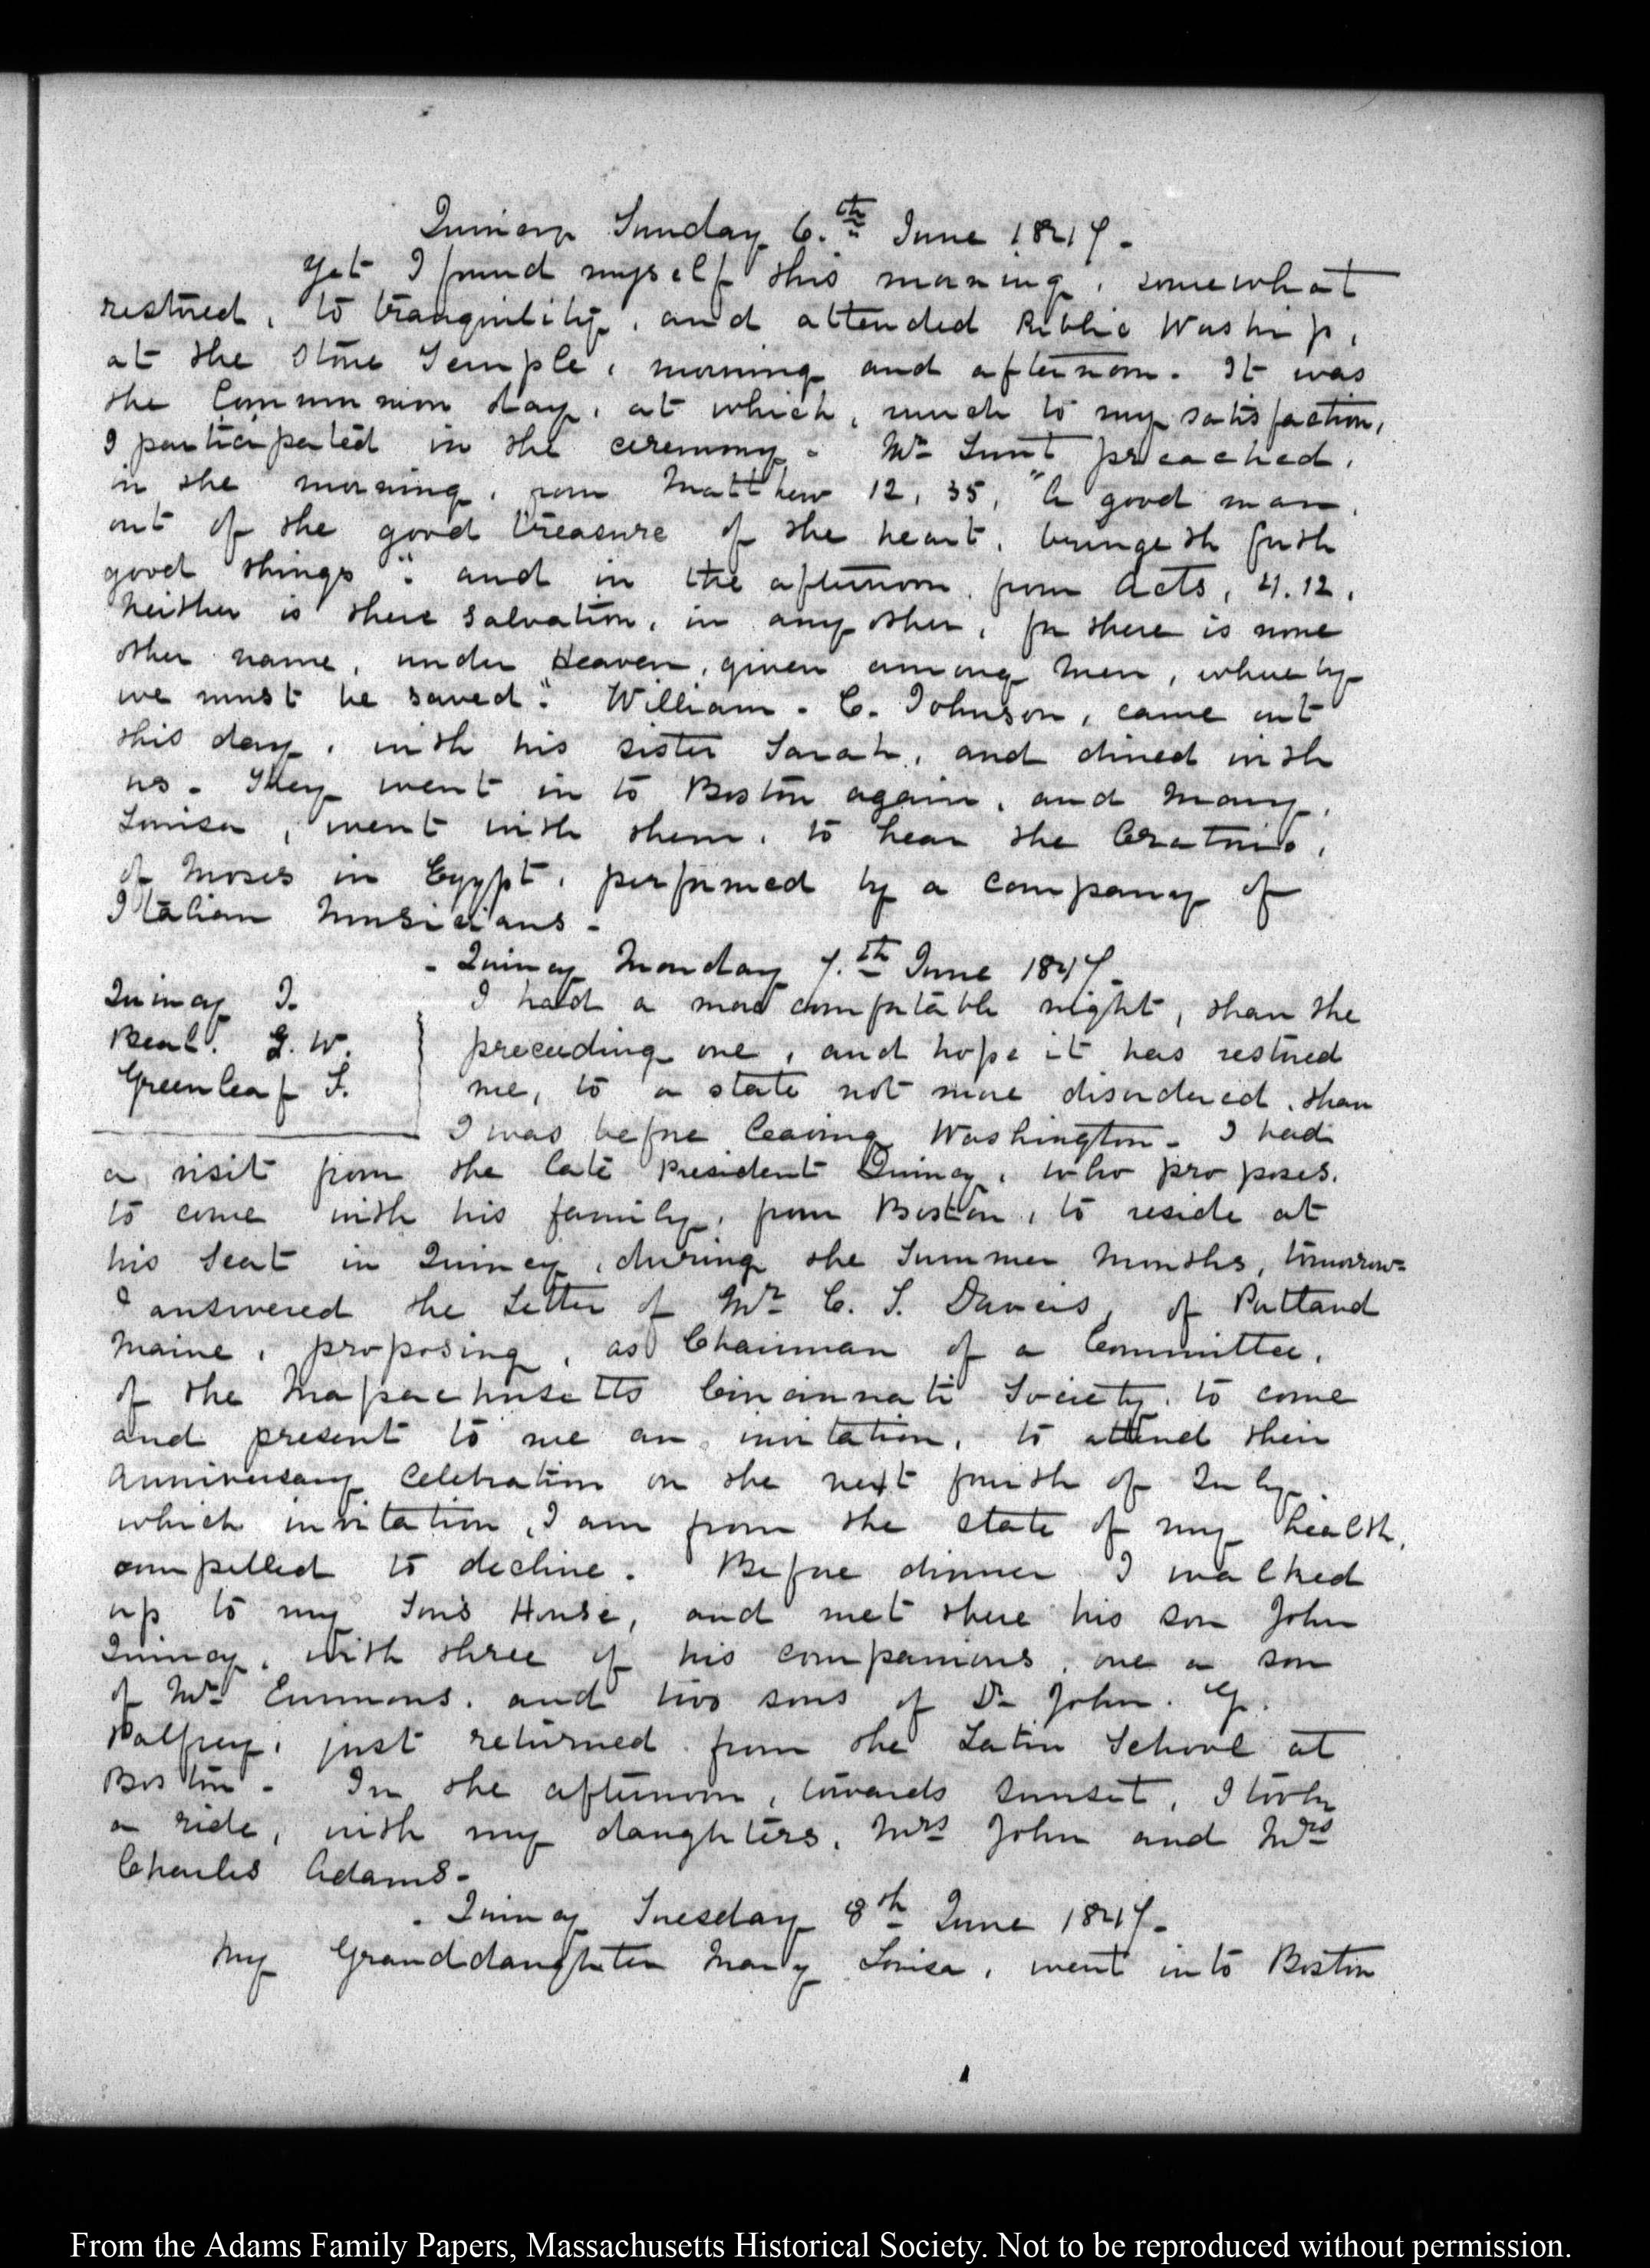 Quincy Sunday 6.th June 1847.
Yet I found myself this morning, somewhat
restored, to tranquility, and attended Public Worship,
at the Stone Temple, morning and afternoon. It was
the Communion day, at which, much to my satisfaction,
I participated in the ceremony. Mr Lunt preached,
in the morning, from Matthew 12, 35, "A good man,
out of the good treasure of the heart, bringeth forth
good things": and in the afternoon from Acts, 4.12,
Neither is there salvation, in any other, for there is none
other name, under Heaven, given among men, whereby
we must be saved." William. C. Johnson, came out
this day, with his sister Sarah, and dined with
us. They went in to Boston again, and Mary,
Louisa, went with them, to hear the Oratorio,
of Moses in Egypt, performed by a company of
Italian Musicians.
Quincy Monday 7.th June 1847.
Quincy J.
Beal. G. W.
Greenleaf T.
I had a more comfortable night, than the
preceeding one, and hope it has restored
me, to a state not more disordered, than
I was before leaving Washington. I had
a visit from the late President Quincy, who proposes.
to come with his family, from Boston, to reside at
his Seat in Quincy, during the Summer Months, tomorrow.
I answered the Letter of Mr C. S. Daveis, of Portland
Maine, proposing, as Chairman of a Committee,
of the Massachusetts Cincinnati Society, to come
and present to me an invitation, to attend their
Anniversary Celebration on the next fourth of July.
which invitation, I am from the state of my health,
compelled to decline. Before dinner I walked
up to my Son's House, and met there his son John
Quincy, with three of his companions, one a son
of Mr Emmons, and two sons of Dr John. G.
Palfrey, just returned from the Latin School at
Boston. In the afternoon, towards sunset, I took
a ride, with my daughters, Mrs John and Mrs
Charles Adams.
Quincy Tuesday 8th June 1847.
My Granddaughter Mary Louisa, went into Boston
From the Adams Family Papers, Massachusetts Historical Society. Not to be reproduced without permission.